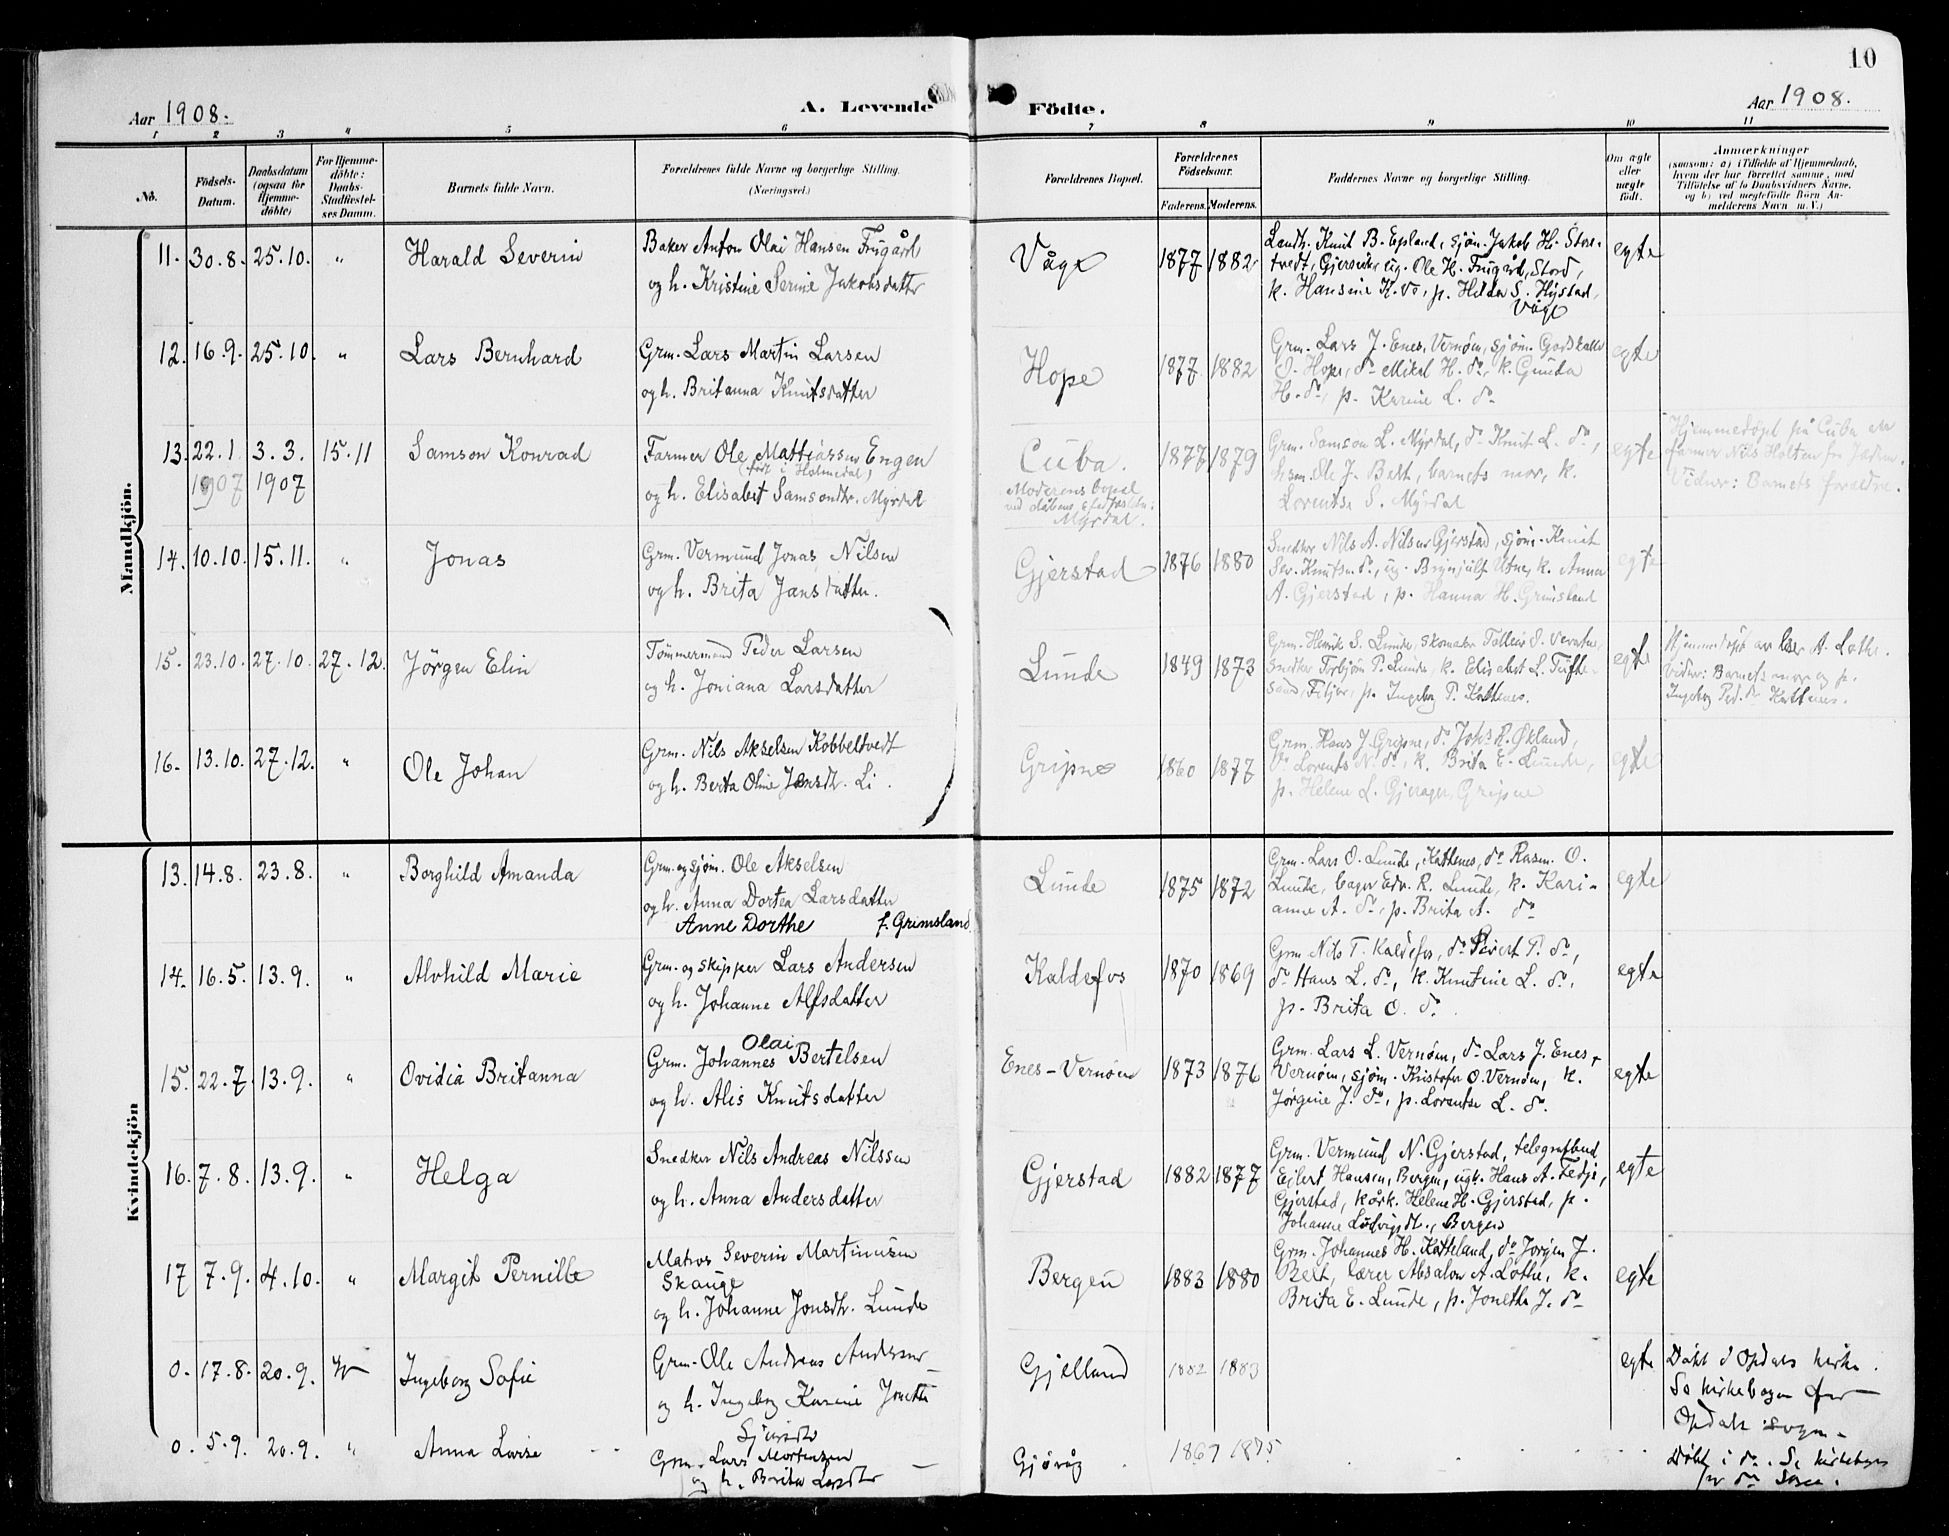 10
Aar 1908. A. Levende Födte. Aar 1908.
1 2 3 4 5 6 7 8 9 10 11
No.
Födsels-Datum.
Daabsdatum (ogsaa for Hjemme-döbte)
For Hjemme-döbte: Daabs-Stadfæstel-ses Datum.
Barnets fulde Navn.
Forældrenes fulde Navne og borgerlige Stilling.
(Næringsvei.)
Forældrenes Bopæl.
Forældrenes Födselsaar.
Faderens. Moderens.
Faddernes Navne og borgerlige Stilling.
Om ægte eller uægte födt.
Anmærkninger
(saasom: a) i Tilfælde af Hjemmedaab,
hvem der har forrettet samme, med
Tilföielse af to Daabsvidners Navne,
og b) ved uegtefödte Börn An-
melderens Navn m. V.)
Mandkjön.
11. 30.8. 25.10. " Harald Severin
Baker Anton Olai Hansen Frugård
og h. Kristine Serine Jakobsdatter
Våge 1877 1882
Landh. Knut B. Epland, sjøm. Jakob H. Store-
tvedt, Gjersvik, ug. Ole H. Frugård, Stord,
k. Hansine K. do, p. Hilda S. Hystad,
Våge
egte
12. 16.9. 25.10. " Lars Bernhard
Grm. Lars Martin Larsen
og h. Britanna Knutsdatter
Hope 1877 1882
Grm. Lars J. Enes, Vernøen, sjøm. Gardskalle
O. Hope, do Mikal H. do, k. Gunda
H. do, p. Karine L. do
egte
13. 22.1. 1907 3.3. 1907 15.11 Samson Konrad
Farmer Ole Mattiassen Engen
(født i Holmedal)
og h. Elisabet Samsondtr. Myrdal
Cuba.
Moderens bopæl
ved dåbens stadfæstelse:
Myrdal.
1877 1879
Grm. Samson L. Myrdal, do Knut L. do,
Husm. Ole J. Belt, barnets mor, k.
Lorentse S. Myrdal
egte
Hjemmedøpt på Cuba av
farmer Nils Holten fra Jædern.
Vidner: Barnets foreldre.
14. 10.10. 15.11. " Jonas
Grm. Vermund Jonas Nilsen
og h. Brita Jansdatter.
Gjerstad 1876 1880
Snedker Nils A. Nilsen Gjerstad, sjøm. Knut
Sev. Knutsen do, ug. Brynjulf Utne, k. Anna
A. Gjerstad, p. Hanna H. Grimsland
egte
15. 23.10. 27.10. 27.12. Jörgen Elin
Tømmermand Peder Larsen
og h. Joniana Larsdatter
Lunde 1849 1873
Grm. Henrik S. Lunde, skomaker Tolleiv O.
snedker Torbjørn P. Lunde, k. Elisabet L. Tufte-
sand, Fitjar, p. Ingeborg P. Kattenes.
egte
Hjemmedøpt av lærer A. Lothe.
Vidner: Barnets mor og p.
Ingeborg Ped.dtr Kattenes.
16. 13.10. 27.12. " Ole Johan
Grm. Nils Akselsen Kobbeltvedt
og h. Berta Oline Jensdtr. Li.
Gripne 1860 1877
Grm. Hans J. Gripne, do Johs R. Økland,
do Lorents N. do, k. Brita E. Lunde,
p. Helene L. Gjerager, Gripne
egte
Kvindekjön
13. 14.8. 23.8. " Borghild Amanda
Grm. og sjøm. Ole Akselsen
og h. Anna Dortea Larsdatter
Anne Dorthe f. Grimsland
Lunde 1875 1872
Grm. Lars O. Lunde, Kattenes, do Rasm. O.
Lunde, bager Edv. R. Lunde, k. Kari-
anne A. do, p. Brita A. do
egte
14. 16.5. 13.9. " Alvhild Marie
Grm. og skipper Lars Andersen
og h. Johanne Alfsdatter
Kaldefos 1870 1869
Grm. Nils T. Kaldefos, do Sivert T. do,
do Hans L. do, k. Knutine L. do,
p. Brita O. do
egte
15. 22.7. 13.9. " Ovidia Britanna
Olai
Grm. Johannes Bertelsen
og h. Alis Knutsdatter
Enes-Vernøen 1873 1876
Grm. Lars L. Vernøen, do Lars J. Enes,
Vernøen, sjøm. Kristofer O. Vernøen, k.
Jørgine J. do, p. Lorentse L. do.
egte
16. 7.8. 13.9. " Helga
Snedker Nils Andreas Nilssen
og h. Anna Andersdatter
Gjerstad 1882 1877
Grm. Vermund N. Gjerstad, telegrafbud
Eilert Hansen, Bergen, ugk. Hans A. Fedje,
Gjerstad, kårk. Helene H. Gjerstad, p.
Johanne Ludvigsdt., Bergen
egte
17 7.9. 4.10. " Margit Pernille
Matros Severin Martinusen
Skauge
og h. Johanne Jonsdtr. Lunde
Bergen 1883 1880
Grm. Johannes H. Katteland, do Jörgen J.
Belt, lærer Absalon A. Lothe, k.
Brita E. Lunde, p. Jonetha J. do
egte
0. 17.8. 20.9. Ingeborg Sofie
Grm. Ole Andreas Andersen
og h. Ingeborg Karine Jonetta
Sjursdtr
Gjelland 1882 1883
egte
Døbt i Opdals kirke.
Se kirkebogen for
Opdals sogn.
0. 5.9. 20.9. " Anna Lovise
Grm. Lars Mortensen
og h. Brita Larsdtr
Gjøvåg 1867 1875
Døbt i do. Se kirkebogen
for do Sogn.